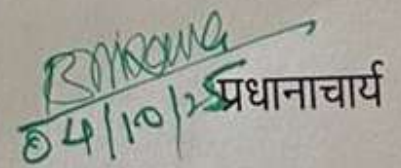 04/10/25
प्रधानाचार्य